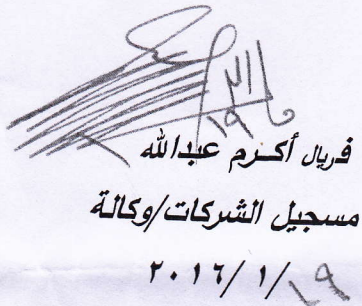 فريال أكرم عبدالله
مسجيل الشركات/وكالة
٢٠١٦/ ١/ ١٩